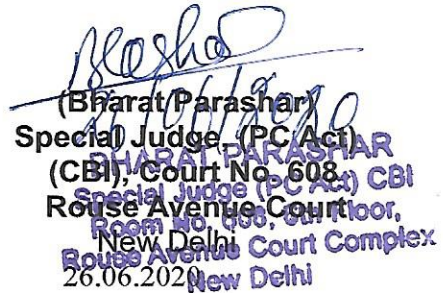 (Bharat Parashar)
Special Judge, (PC Act)
(CBI), Court No. 608
Rouse Avenue Court
New Delhi
26.06.2020
BHARAT PARASHAR
Special Judge (PC Act) CBI
Room No. 608, 6th Floor,
Rouse Avenue Court Complex
New Delhi